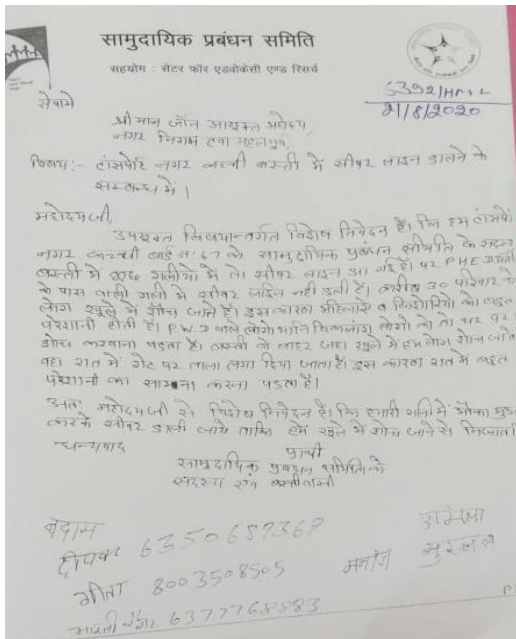 सामुदायिक प्रबंधन समिति
सहयोग : सेंटर फॉर एडवोकेसी एण्ड रिसर्च
21/8/2020
सेवामे
श्री मान जॉन आयुक्त महोदय,
नगर निगम हवा महल पूर्व,
विषय:- ट्रांसपोर्ट नगर कच्ची बस्ती में सीवर लाइन डालने के
सम्बन्ध में।
महोदय जी,
उपयुक्त विषयान्तर्गत विशेष निवेदन है। कि हम ट्रांसपोर्ट
नगर कच्ची वार्ड न. 67 के सामुदायिक प्रबंधन समिति के सदस्य
बस्ती में गलीयो में तो सीवर लाइन आ गई है। पर P.H.E.D
के पास वाली गली में सीवर लाईन नही डली है। करीब 30 परिवार के
लोग खुले में शौच जाते है। इस कारण महिलाओ व किशोरियो को बहुत
परेशानी होती है। P.W.D वाले लोगो यानि विकलांग लोगो को तो घर पर
शौच करवाना पडता है। बस्ती के बाहर जहा खुले में हम लोग शौच जाते
वहा रात में गेट पर ताला लगा दिया जाता है। इस कारण रात में बहुत
परेशानी का सामना करना पडता है।
अतः महोदय जी से विशेष निवेदन है। कि हमारी गली में मौका
करके सीवर डाली जाये ताकि हमे खुले में शौच जाने से
धन्यवाद
प्राथी
सामुदायिक प्रबंधन समिति के
सदस्य एवं बस्तीवासी
बदाम
दीपक 6350687367
गीता 8003508505 मनोज
6377768883